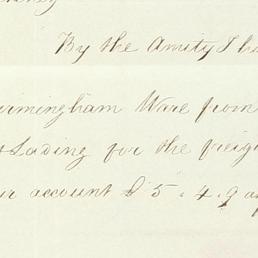 By the Amity I ha
rmingham Ware from
Lading for the freig
ur account £ 5. 4. 9 a